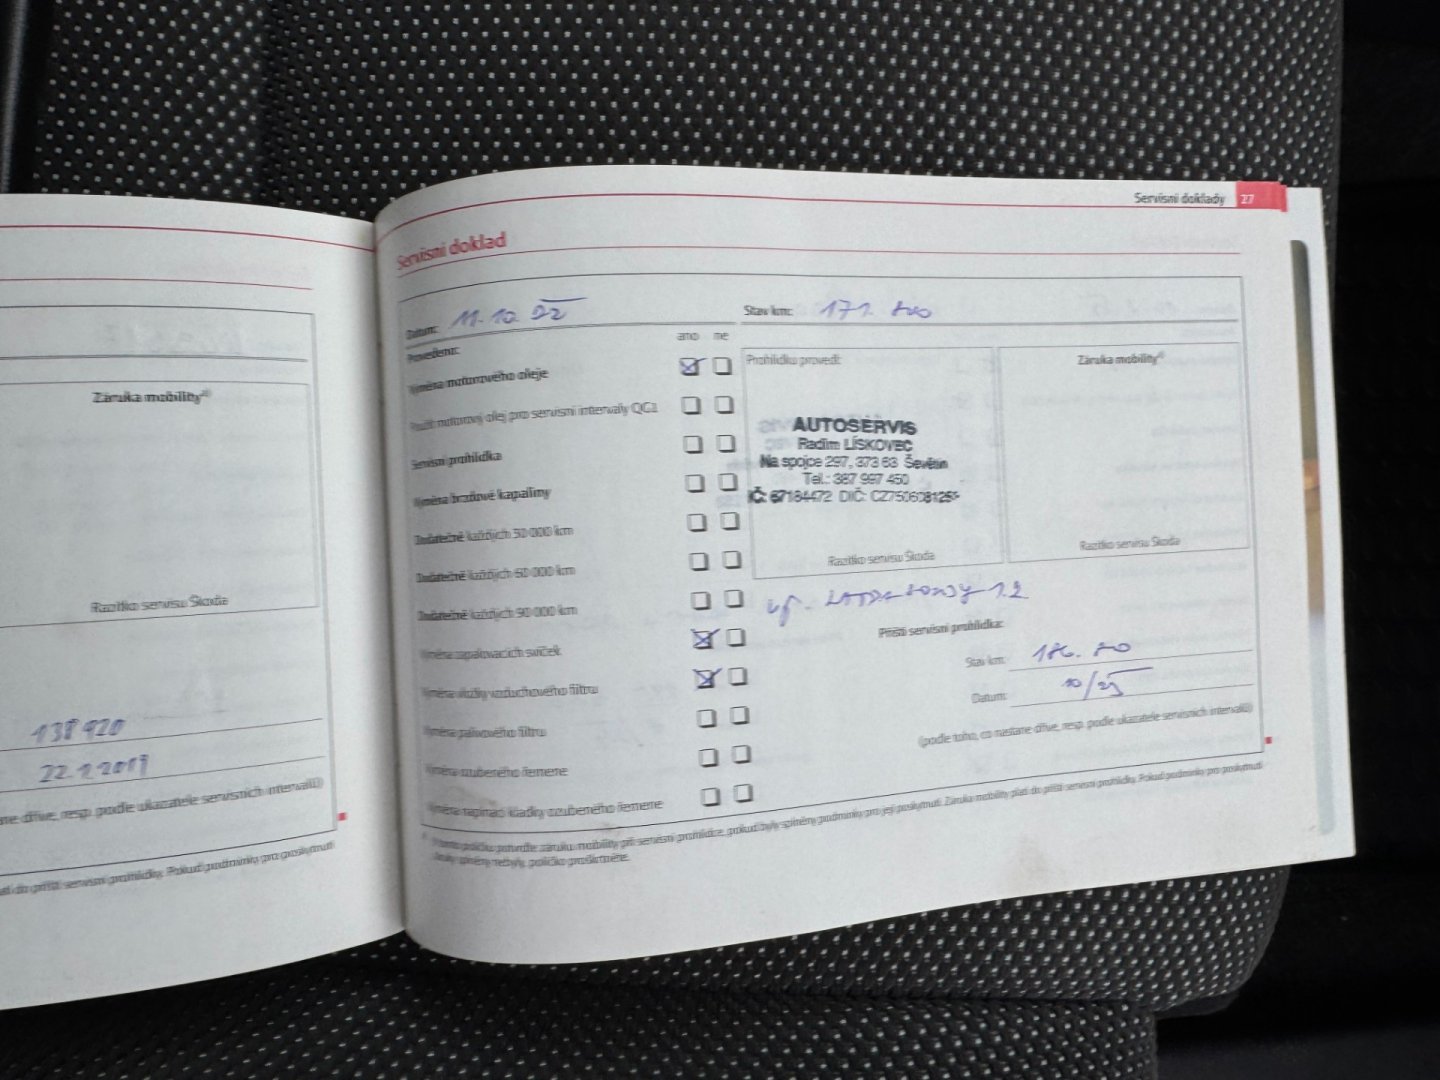 Záruka mobility
Razítko servisu Škoda
138 920
22.1.2019
dříve, resp. podle ukazatele servisních intervalů)
do příští servisní prohlídky. Pokud podmínky pro poskytnutí
Servisní doklady 27
Servisní doklad
Datum: 11.10.22
Stav km: 171.
Provedeno:
ano ne
Výměna motorového oleje
Použit motorový olej pro servisní intervaly QG1
Servisní prohlídka
Výměna brzdové kapaliny
Dodatečně každých 30 000 km
Dodatečně každých 60 000 km
Dodatečně každých 90 000 km
Výměna zapalovacích svíček
Výměna vložky vzduchového filtru
Výměna palivového filtru
Výměna ozubeného řemene
Výměna napínací kladky ozubeného řemene
Prohlídku provedl:
AUTOSERVIS
Radim LÍSKOVEC
Na spojce 297, 373 63 Ševětín
Tel.: 387 997 450
IČ: 67184472 DIČ:
Razítko servisu Škoda
Záruka mobility
Razítko servisu Škoda
Příští servisní prohlídka:
Stav km:
Datum: 10/23
(podle toho, co nastane dříve, resp. podle ukazatele servisních intervalů)
políčko potvrďte záruku mobility při servisní prohlídce, pokud byly splněny podmínky pro její poskytnutí. Záruka mobility platí do příští servisní prohlídky. Pokud podmínky pro poskytnutí
záruky splněny nebyly, políčko proškrtněte.